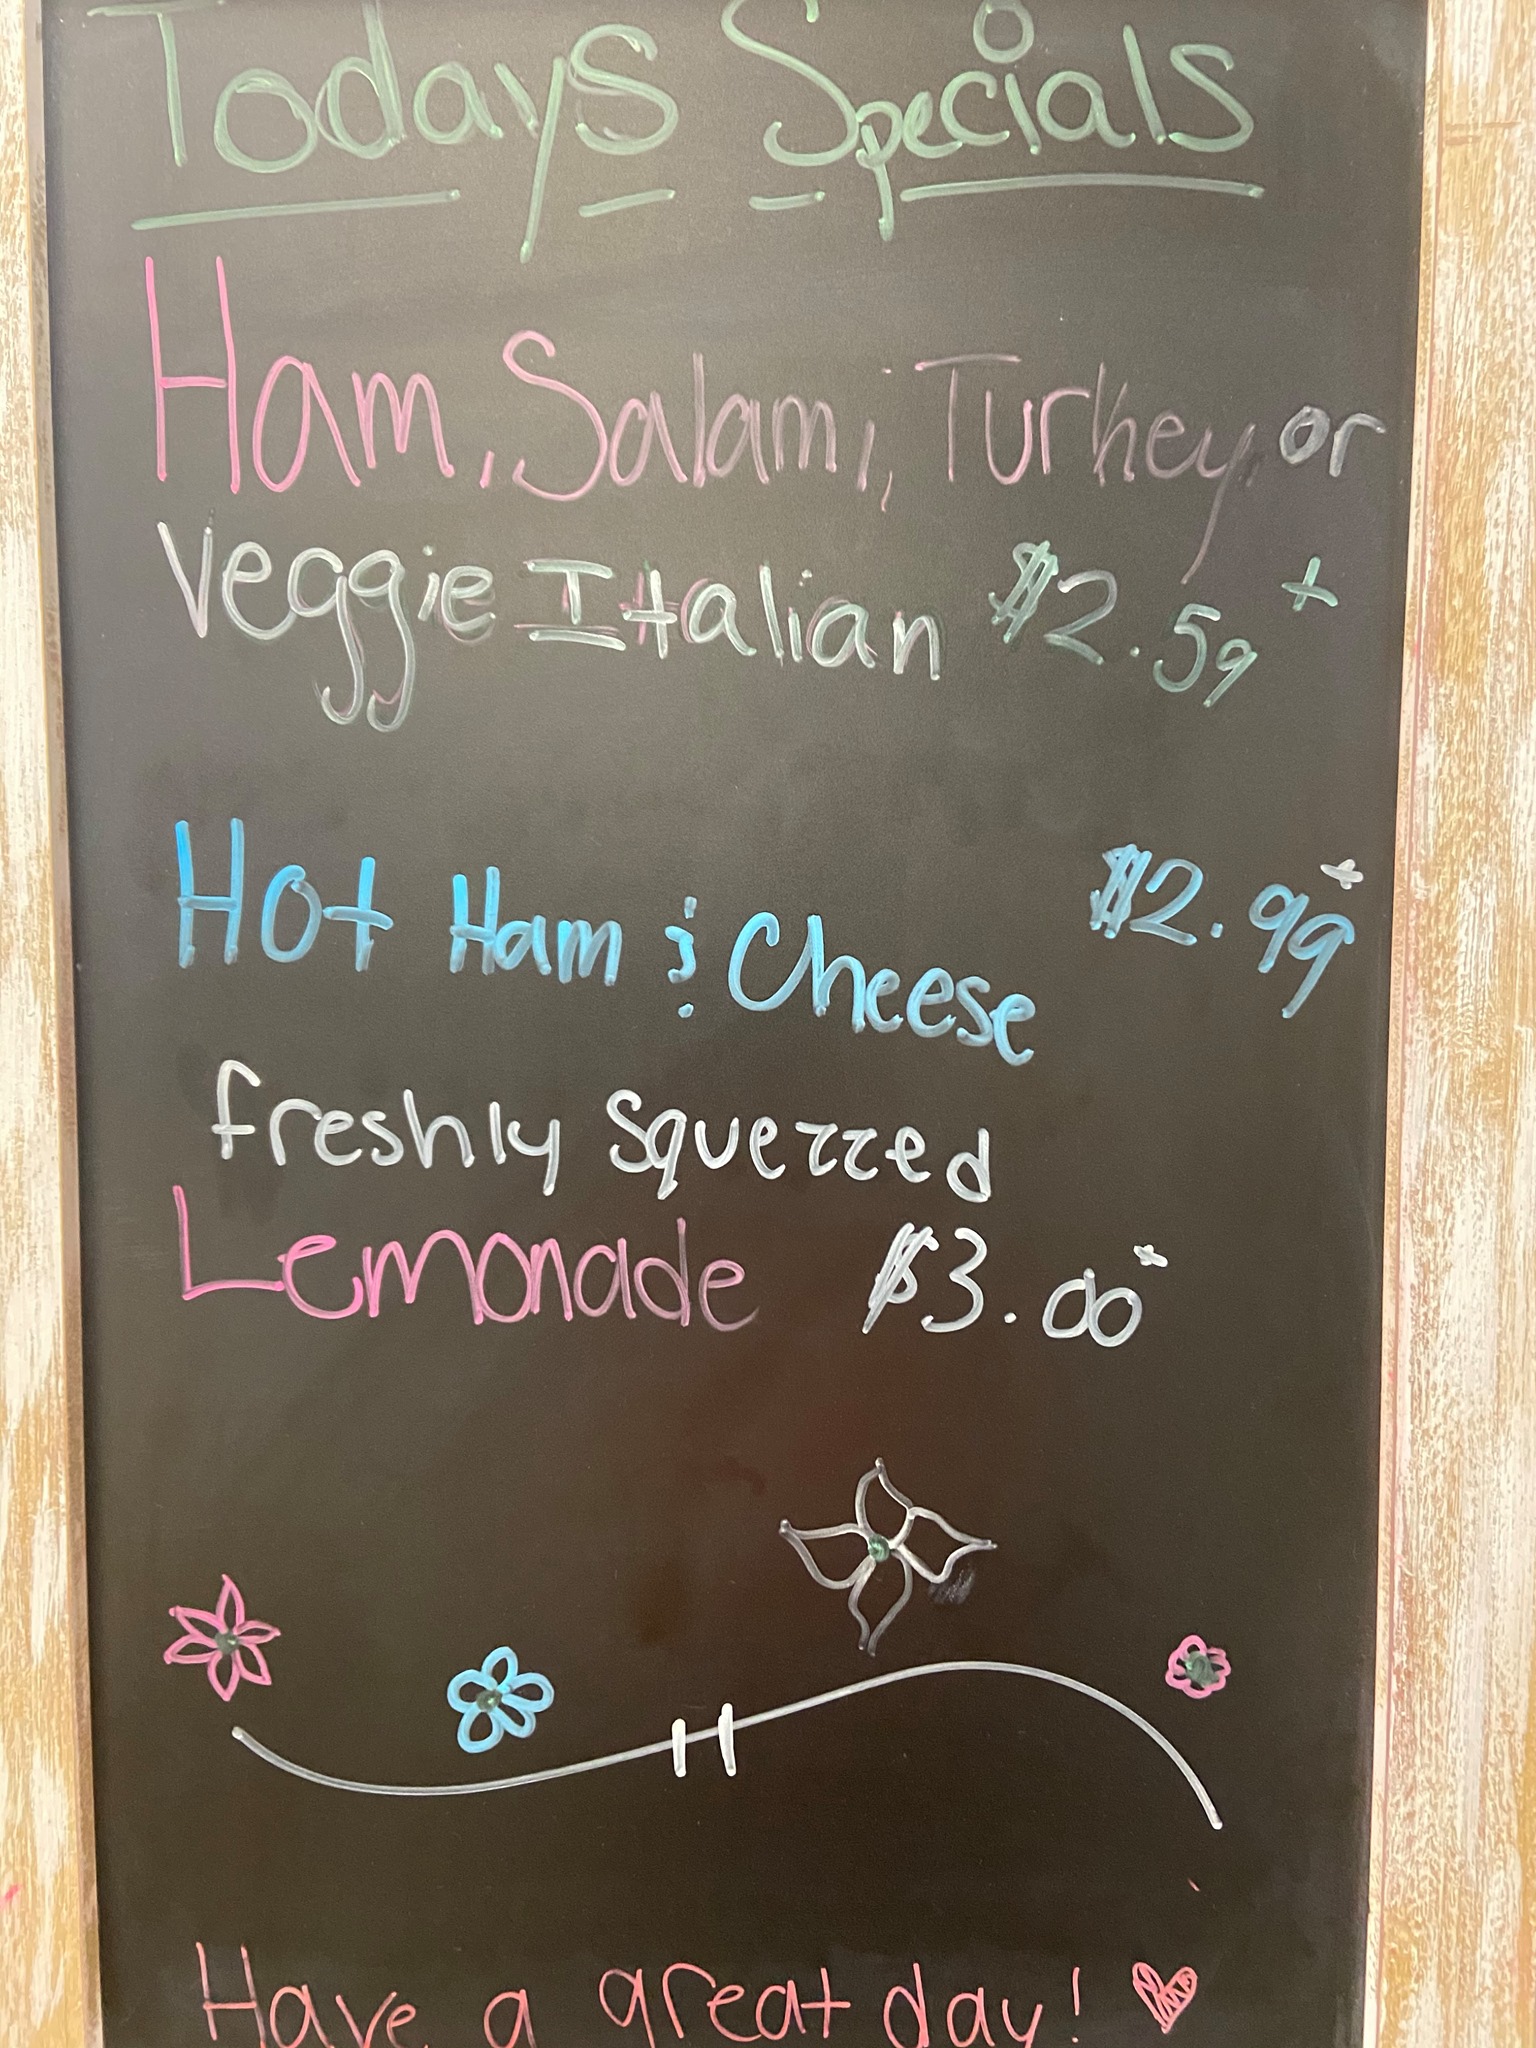 Todays Specials
Ham, Salami, Turkey, or
Veggie Italian $2.59+
Hot Ham & Cheese $2.99+
freshly squezzed
Lemonade $3.00+
Have a great day!